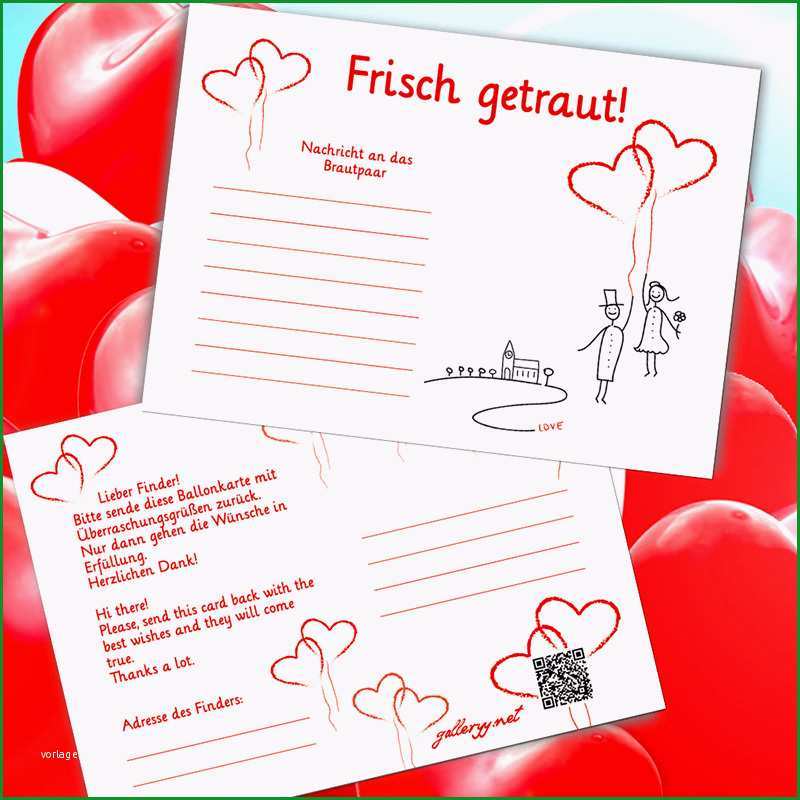 Frisch getraut!
Nachricht an das
Brautpaar
LOVE
Lieber Finder!
Bitte sende diese Ballonkarte mit
Überraschungsgrüßen zurück.
Nur dann gehen die Wünsche in
Erfüllung.
Herzlichen Dank!
Hi there!
Please, send this card back with the
best wishes and they will come
true.
Thanks a lot.
Adresse des Finders:
galleryy.net
vorlage